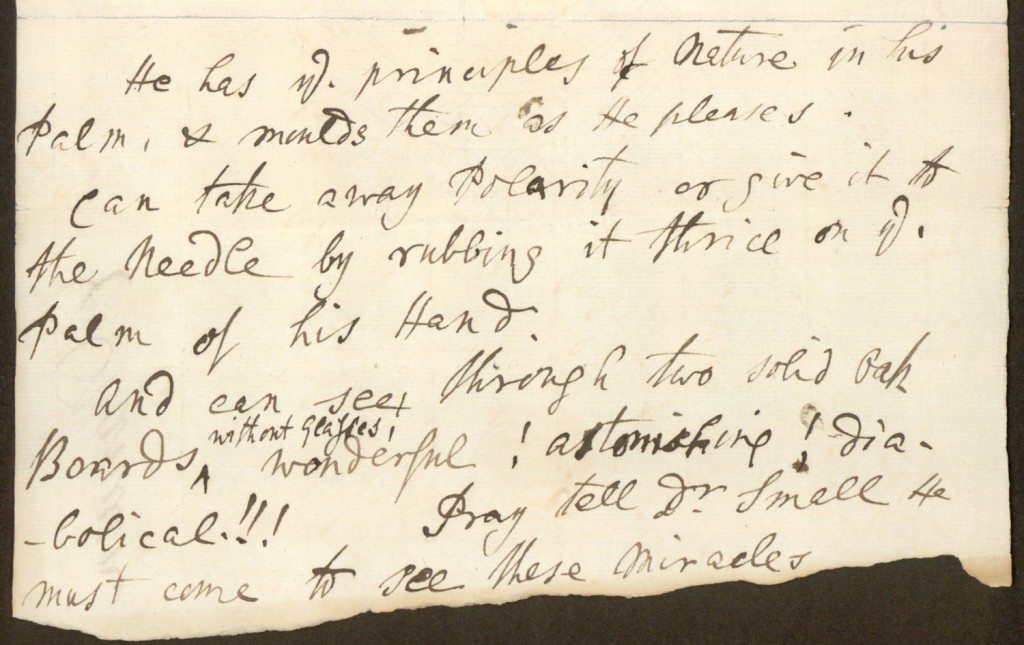 He has ye. principles of Nature in his
Palm, & moulds them as He pleases.
Can take away Polarity or give it to
the Needle by rubbing it thrice on ye.
Palm of his Hand.
And can see through two solid Oak
without Glasses!
Boards, ^ wonderful! astonishing! dia-
-bolical!!! Pray tell Dr Small He
must come to see these Miracles